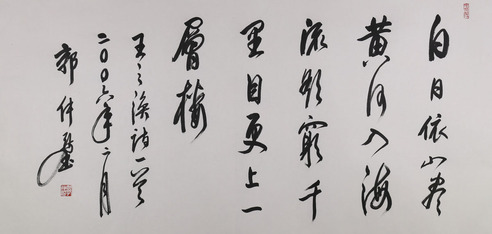 白日依山尽
黄河入海
流欲窮千
里目更上一
層楼
王之涣詩一首
二〇〇六年二月
郭